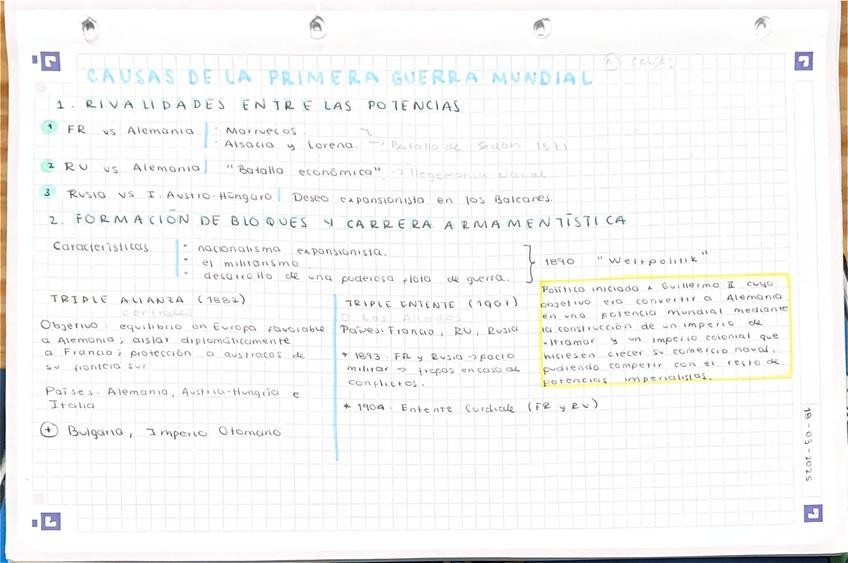 CAUSAS DE LA PRIMERA GUERRA MUNDIAL
1. RIVALIDADES ENTRE LAS POTENCIAS
1 FR vs Alemania
· Marruecos
· Alsacia y Lorena. → Batalla de Sedán 1871
2 RU vs Alemania "Batalla económica" → Hegemonía naval
3 Rusia vs I. Austro-Húngaro Deseo expansionista en los Balcanes.
2. FORMACIÓN DE BLOQUES Y CARRERA ARMAMENTÍSTICA
Características
· nacionalismo expansionista.
· el militarismo
· desarrollo de una poderosa flota de guerra.
1890 "Weltpolitik"
Política iniciada x Guillermo II cuyo
objetivo era convertir a Alemania
en una potencia mundial mediante
la construcción de un imperio de
ultramar y un imperio colonial que
hiciesen crecer su comercio naval,
pudiendo competir con el resto de
potencias imperialistas.
TRIPLE ALIANZA (1882)
centrales
Objetivo: equilibrio en Europa favorable
a Alemania; aislar diplomáticamente
a Francia; protección a austriacos de
su frontera sur
Países: Alemania, Austria-Hungría e
Italia
+ Bulgaria, Imperio Otomano
TRIPLE ENTENTE (1907)
O los Aliados
Países: Francia, RU, Rusia
* 1893: FR y Rusia → pacto
militar → tropas en caso de
conflictos.
* 1904: Entente Cordiale (FR y RU)
18-03-2025